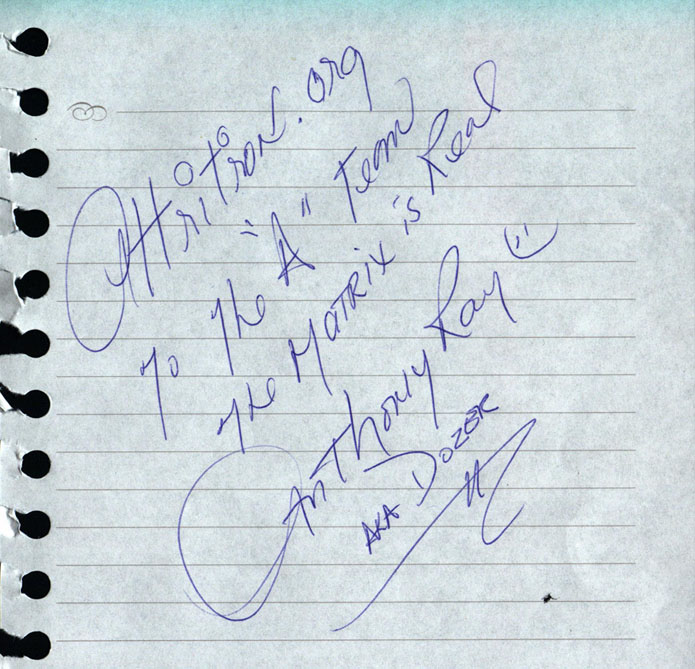 Attrition.org
To The "A" Team
The MATRIX is Real
Anthony Ray
AKA DOZER